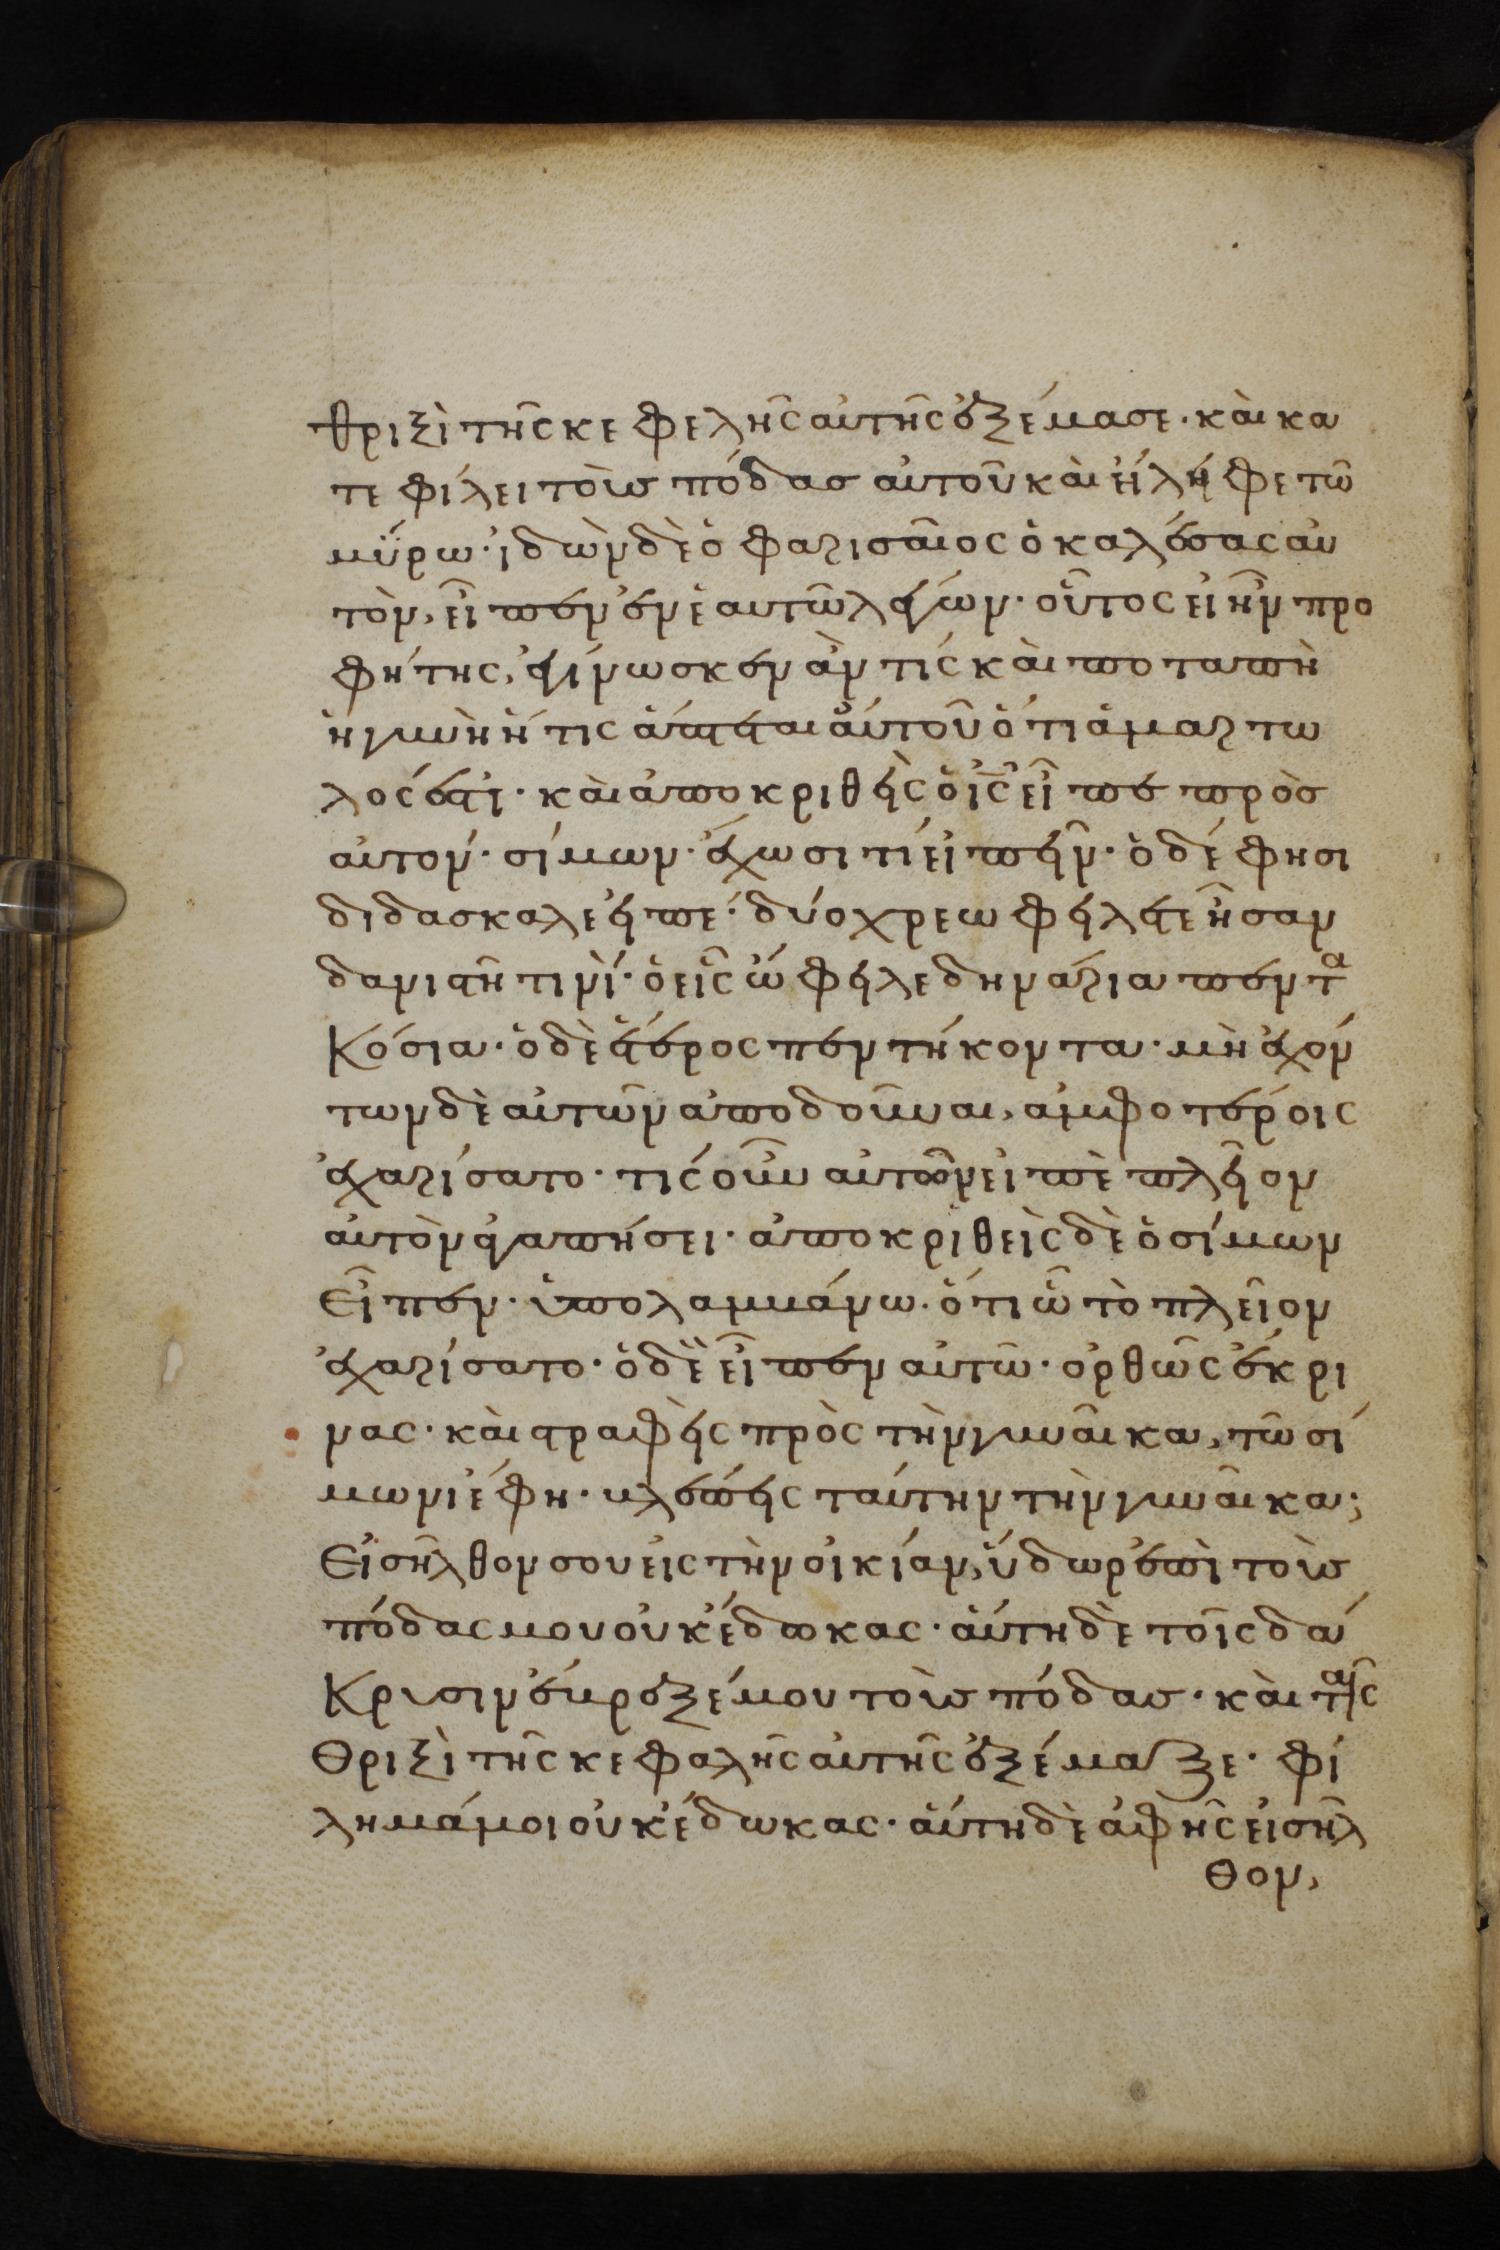 θριξὶ τῆς κεφελῆς αὐτῆς ἐξέμασε· καὶ κα
τεφίλει τοὺς πόδας αὐτοῦ καὶ εἴληφε τῶ
μύρω· ἰδὼν δὲ ὁ φαρισαῖος ὁ καλέσας αὐ
τὸν, εἶπεν ἐν ἑαυτῶ λέγων· οὗτος εἰ ἦν προ
φήτης, ἐγίνωσκεν ἂν τίς καὶ ποταπὴ
ἡ γυνὴ ἥτις ἅπτεται αὐτοῦ ὅτι ἁμαρτω
λός ἐστι· καὶ ἀποκριθεὶς ὁ ις εἶπε πρὸς
αὐτον· σίμων· ἔχω σι τί εἰπεῖν· ὁ δέ φησι
διδασκαλε εἰπέ· δύο χρεωφειλέτε ἦσαν
δανιστῆ τινί· ὁ εἷς ὤφειλε δηνάρια πεντα
κόσια· ὁ δὲ ἕτερος πεντήκοντα· μὴ ἐχόν
των δὲ αὐτῶν ἀποδοῦναι, ἀμφοτέροις
ἐχαρίσατο· τίς οὖν αὐτῶν εἰπὲ πλεῖον
αὐτὸν ἀγαπήσει· ἀποκριθεὶς δὲ ὁ σίμων
εἶπεν· ὑπολαμμάνω· ὅτι ὧ τὸ πλεῖον
ἐχαρίσατο· ὁ δὲ εἶπεν αὐτῶ· ὀρθῶς ἔκρι
νας· καὶ στραφεὶς πρὸς τὴν γυναῖκα, τῶ σί
μωνι ἔφη· βλέπεις ταύτην τὴν γυναῖκα;
εἰσῆλθον σου εἰς τὴν οἰκίαν, ὕδωρ ἐπὶ τοὺς
πόδας μου οὐκ ἔδωκας· αὕτη δὲ τοῖς δά
κρυσιν ἔβρεξέ μου τοὺς πόδας· καὶ ταῖς
θριξὶ τῆς κεφαλῆς αὐτῆς ἐξέμαξε· φί
λημά μοι οὐκ ἔδωκας· αὕτη δὲ ἀφ ἧς εἰσῆλ
θον,